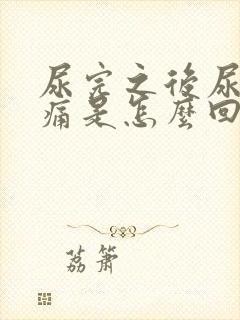 尿完之後尿
痛是怎麼回
荔簫